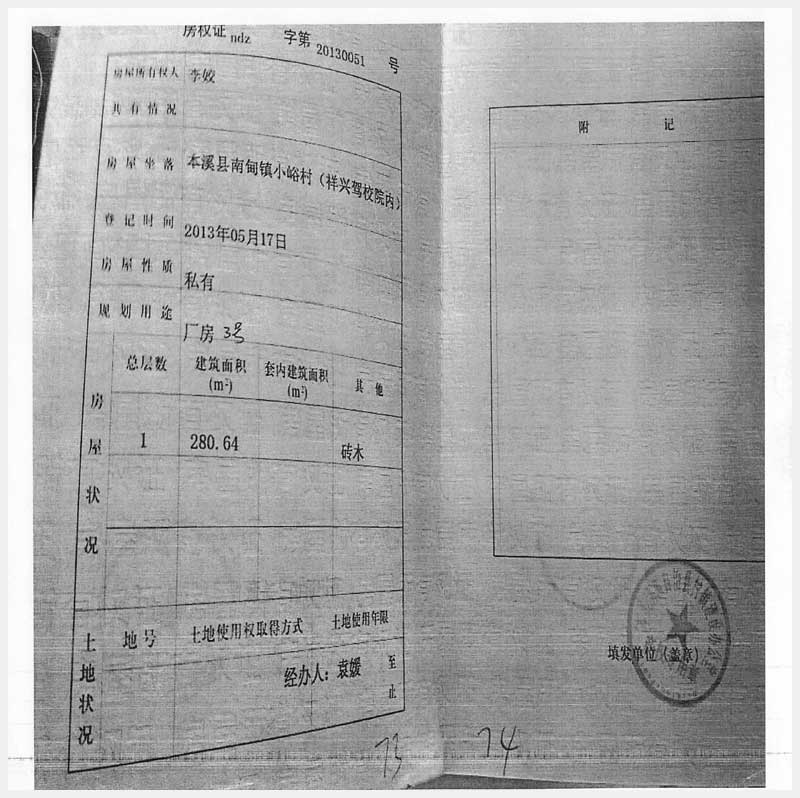 房权证 ndz 字第 20130051 号
房屋所有权人 李姣
共有情况
房屋坐落 本溪县南甸镇小峪村（祥兴驾校院内）
登记时间 2013年05月17日
房屋性质 私有
规划用途 厂房 3号
房屋状况
总层数 建筑面积(m²) 套内建筑面积(m²) 其他
1 280.64 砖木
土地状况
地号 土地使用权取得方式 土地使用年限
经办人：袁媛 至 止
73
附记
填发单位（盖章）
74